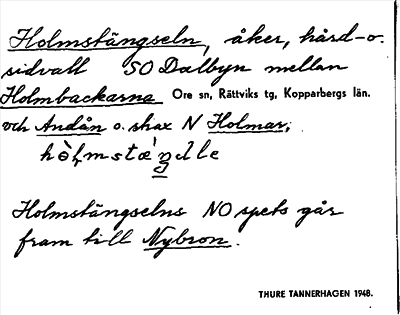 Holmstängseln, åker, hård- o.
sidvall SO Dalbyn mellan
Holmbackarna Ore sn, Rättviks tg, Kopparbergs län.
och Andån o. strax N Holmar;
Holmstängselns NO spets går
fram till Nybron.
THURE TANNERHAGEN 1948.